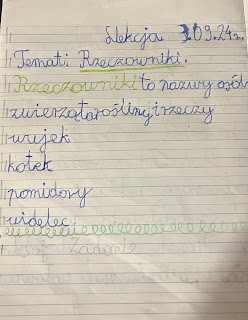 Lekcja 3.09.24r.
Temat: Rzeczowniki.
Rzeczowniki to nazwy osób
zwierząt a rośliny i rzeczy
wujek
kotek
pomidory
widelec